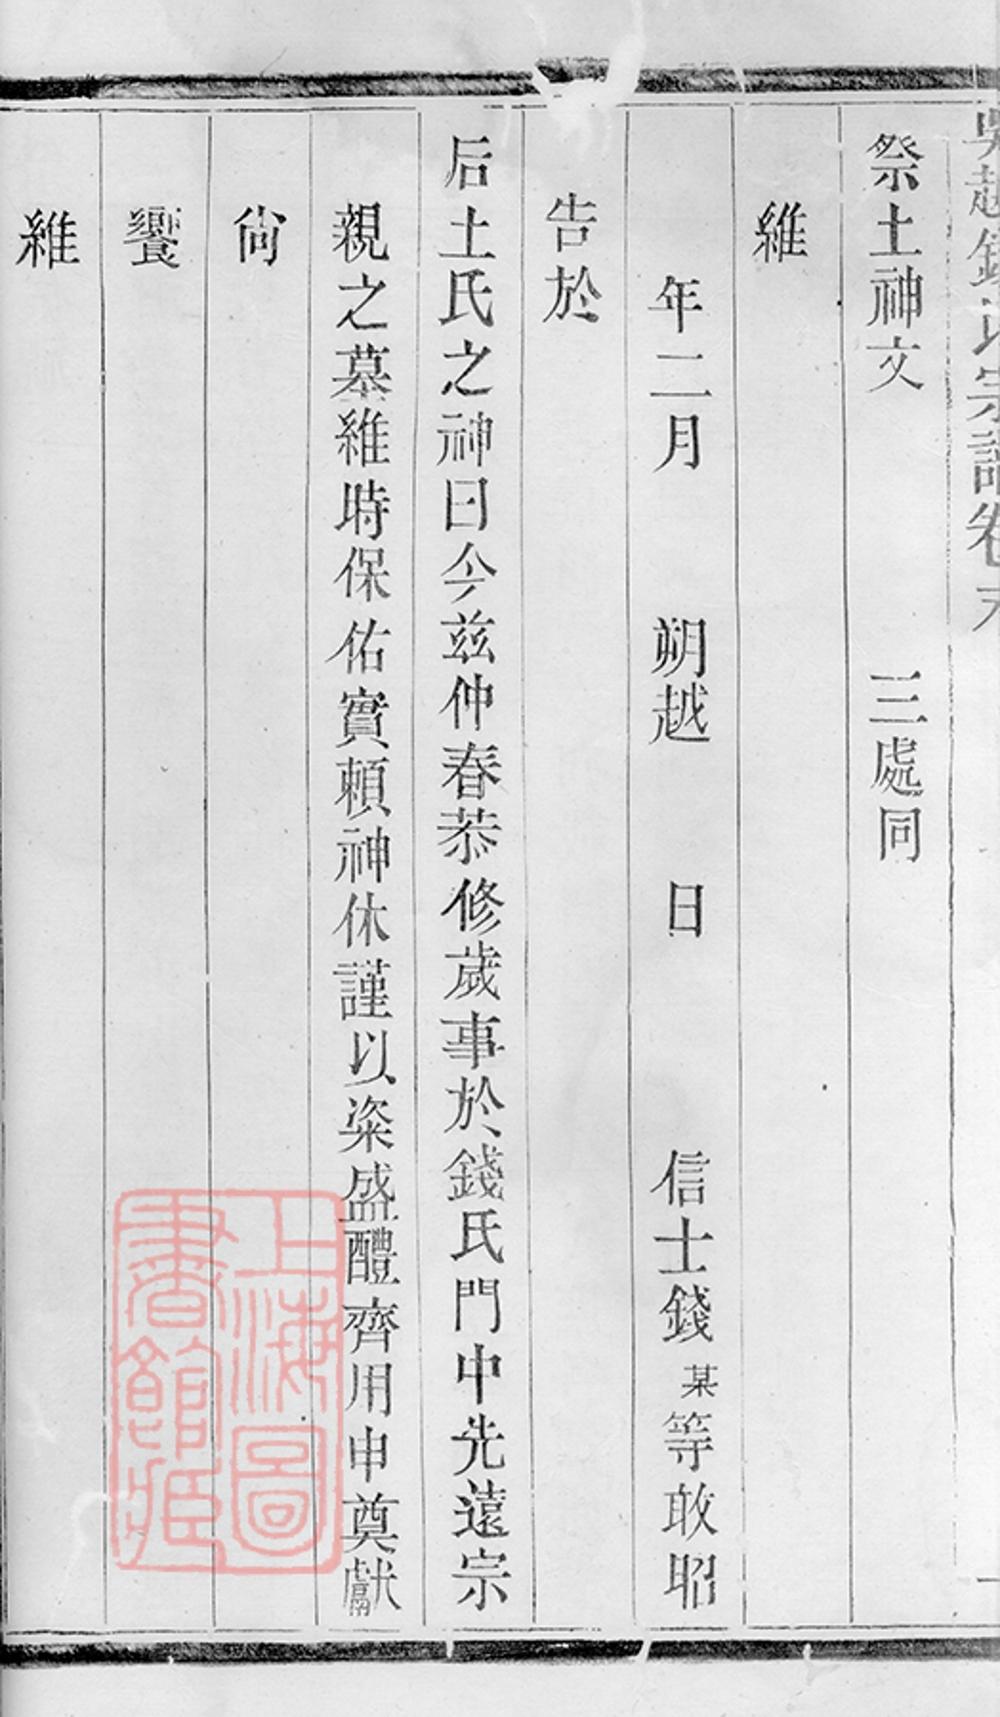 吳越錢氏宗譜卷末
祭土神文 三處同
維
年二月 朔越 日 信士錢某等敢昭
告於
后土氏之神曰今茲仲春恭修歲事於錢氏門中先遠宗
親之墓維時保佑實賴神休謹以粢盛醴齊用申奠獻
尚
饗
維
上海圖
書館藏